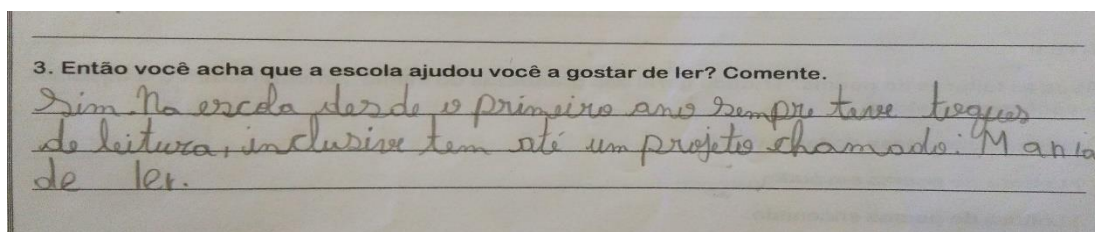 3. Então você acha que a escola ajudou você a gostar de ler? Comente.
Sim. Na escola desde o primeiro ano sempre teve toques
de leitura, inclusive tem até um projeto chamado: Mania
de ler.